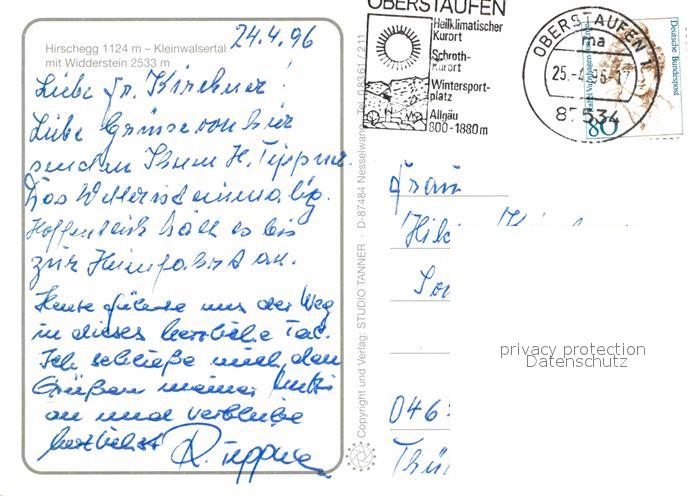 Hirschegg 1124 m – Kleinwalsertal
mit Widderstein 2533 m
24.4.96
Liebe Fr. Kirchner!
Liebe Grüsse von hier
senden Ihnen H. Tippner.
Das Wetter ist einmalig.
Hoffentlich hält es bis
zur Heimfahrt an.
Heute führte uns der Weg
in dieses herrliche Tal.
Ich schließe mich den
Grüßen meiner Mutti
an und verbleibe
herzlichst R. Tippner
Copyright und Verlag: STUDIO TANNER · D-87484 Nesselwang · Tel. 08361 / 211
OBERSTAUFEN
Heilklimatischer
Kurort
Schroth-
Kurort
Wintersport-
platz
Allgäu
800 - 1880 m
OBERSTAUFEN 1
na
25.-4.96-17
87534
Deutsche Bundespost
80
Frau
046
Thü
privacy protection
Datenschutz